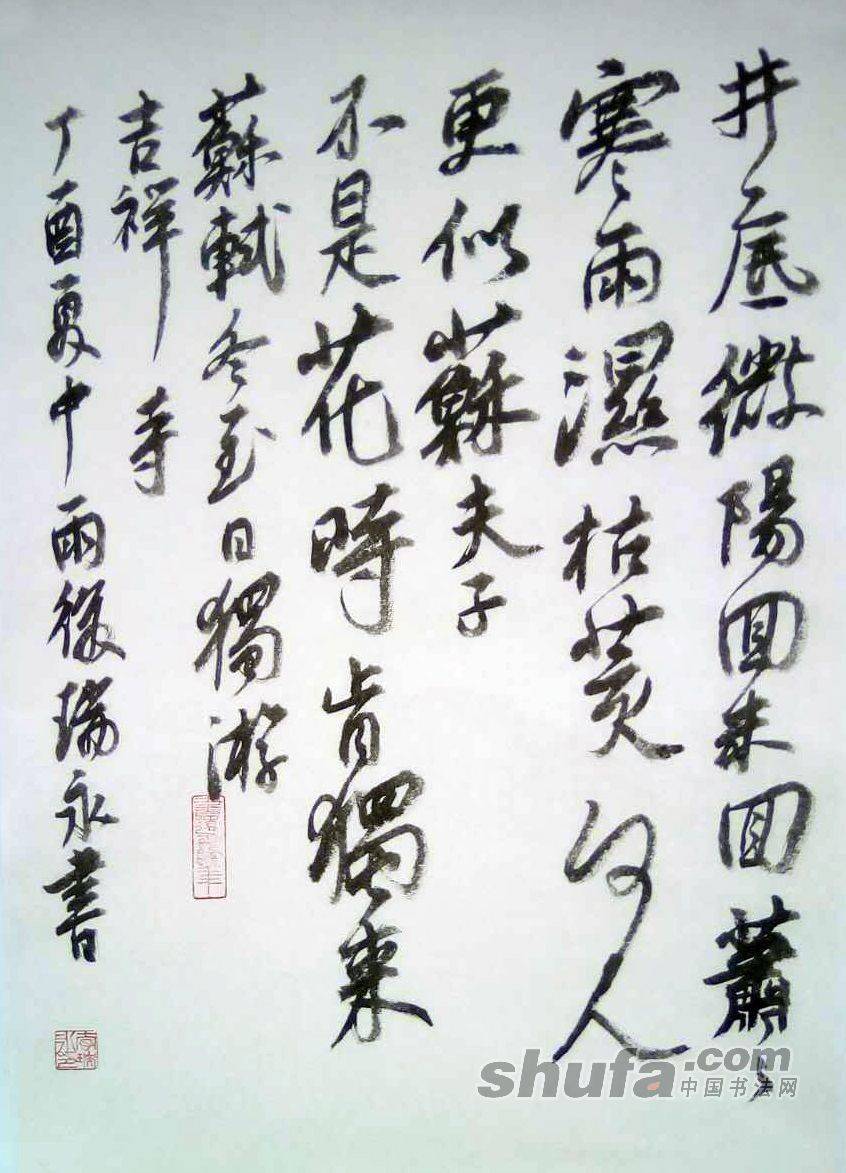 井底微陽回未回蕭〻
寒〻雨濕枯荄何人
更似蘇夫子
不是花時肯獨來
蘇軾冬至日獨游
吉祥寺
丁酉夏中雨後瑞永書
shufa.com
中国书法网